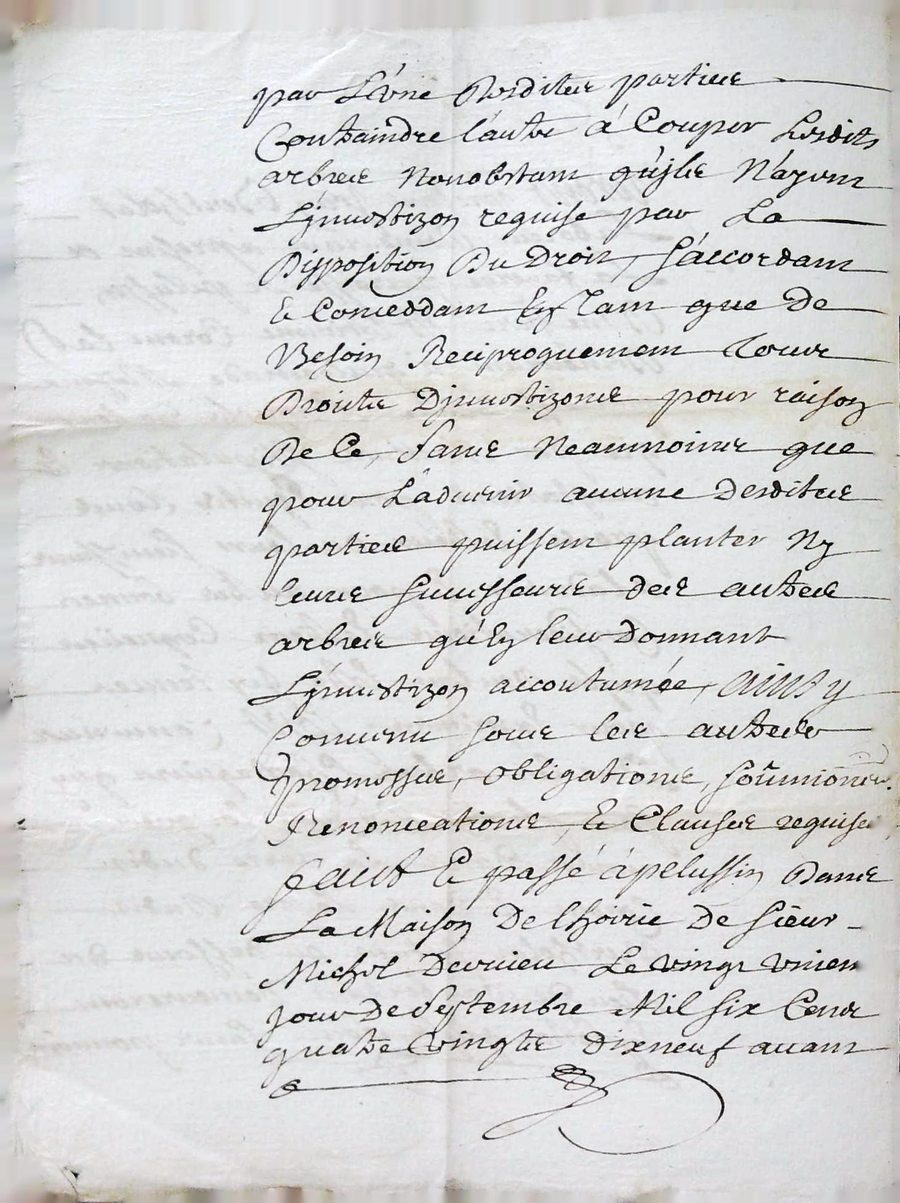 par L'une desdites parties
Contraindre l'autre à Couper Lesdits
arbres Nonobstant qu'ils N'ayent
L'jnvestizon requise par La
Disposition Du Droit, s'accordant
Et Conceddant En Tant que De
Besoin Reciproquement Tous
Droits D'jnvestizons pour raison
De Ce, sans Neanmoins que
pour L'advenir aucune Desdites
parties puissent planter Ny
leurs successeurs des autres
arbres qu'En leur Donnant
L'jnvestizon accoutumée, ainsy
Convenu sous les autres
promesses, obligations, soûmions,
Renonceations, Et Clauses requises
faict Et passé à pelussin Dans
La Maison De l'hoirie De sieur
Michel Devrieu Le vingt unien
jour De Septembre Mil six Cens
quatre vingts dixneuf avant